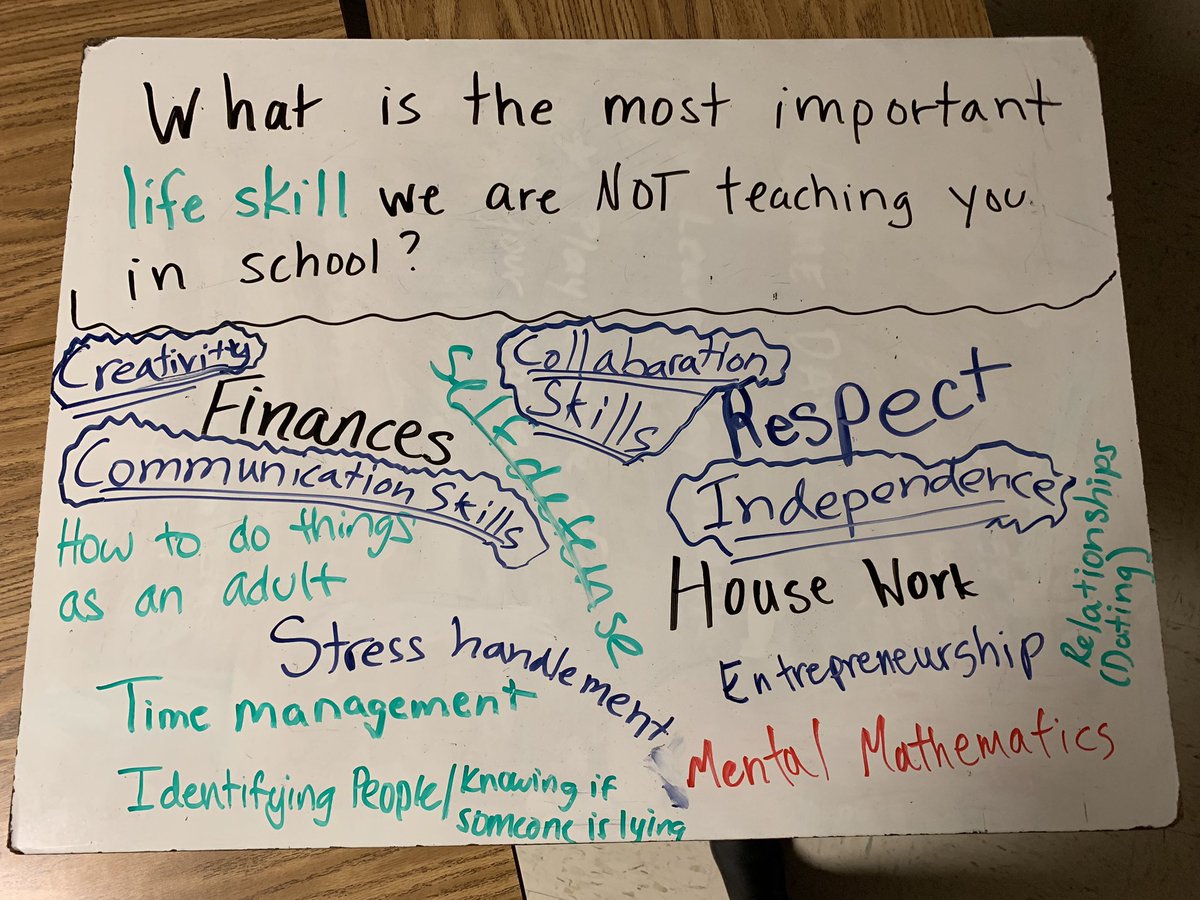 What is the most important
life skill we are NOT teaching you
in school?
Creativity
Finances
Communication Skills
How to do things
as an adult
Stress handlement
Time management
Identifying People/Knowing if
someone is lying
Self defense
Collabaration
Skills
Respect
Independence
House Work
Entrepreneurship
Mental Mathematics
Relationships
(Dating)